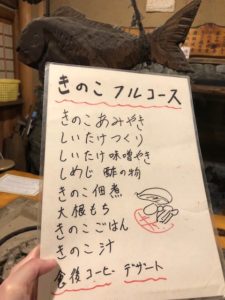 きのこ フルコース
きのこあみやき
しいたけつくり
しいたけ味噌やき
しめじ 酢の物
きのこ佃煮
大根もち
きのこごはん
きのこ汁
食後コーヒー デザート